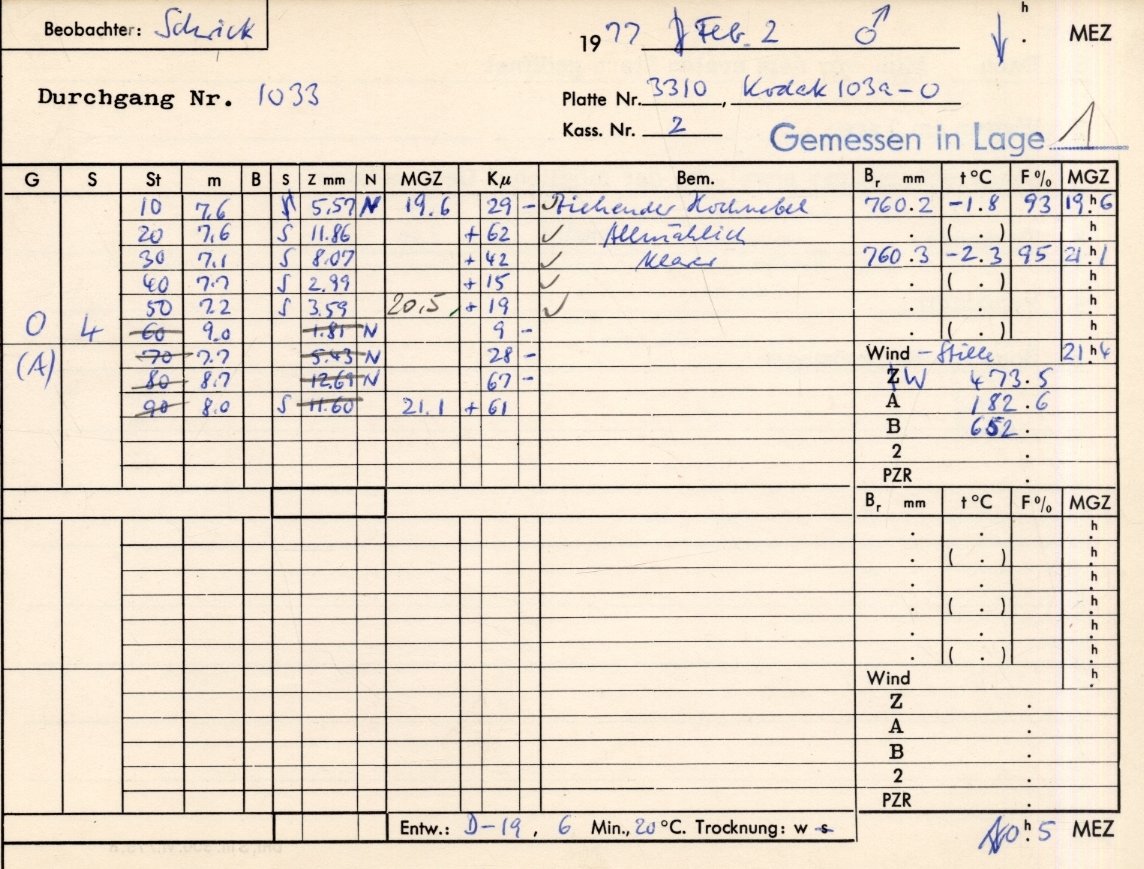 Beobachter: Schrick
1977 Feb. 2 ♂ h . MEZ
Durchgang Nr. 1033
Platte Nr. 3310, Kodak 103a-O
Kass. Nr. 2
Gemessen in Lage 1
G S St m B S Z mm N MGZ Kμ Bem. Br mm t°C F% MGZ
10 7.6 5.57 N 19.6 29 - Ziehender Hochnebel 760.2 -1.8 93 19h6
20 7.6 S 11.86 + 62 ✓ Allmählich . ( . ) h
30 7.1 S 8.07 + 42 ✓ klarer 760.3 -2.3 95 21h1
40 7.7 S 2.99 + 15 ✓ . ( . ) h
50 7.2 S 3.59 20.5 + 19 ✓ . . h
0 4 60 9.0 1.81 N 9 - . ( . ) h
(A) 70 7.7 5.43 N 28 - Wind - Stille 21h4
80 8.7 12.69 N 67 - Z W 473.5
90 8.0 S 11.60 21.1 + 61 A 182.6
B 652.
2 .
PZR .
Br mm t°C F% MGZ
. . h
. ( . ) h
. . h
. ( . ) h
. . h
. ( . ) h
Wind h
Z .
A .
B .
2 .
PZR .
Entw.: D-19, 6 Min., 20°C. Trocknung: w s
0h.5 MEZ